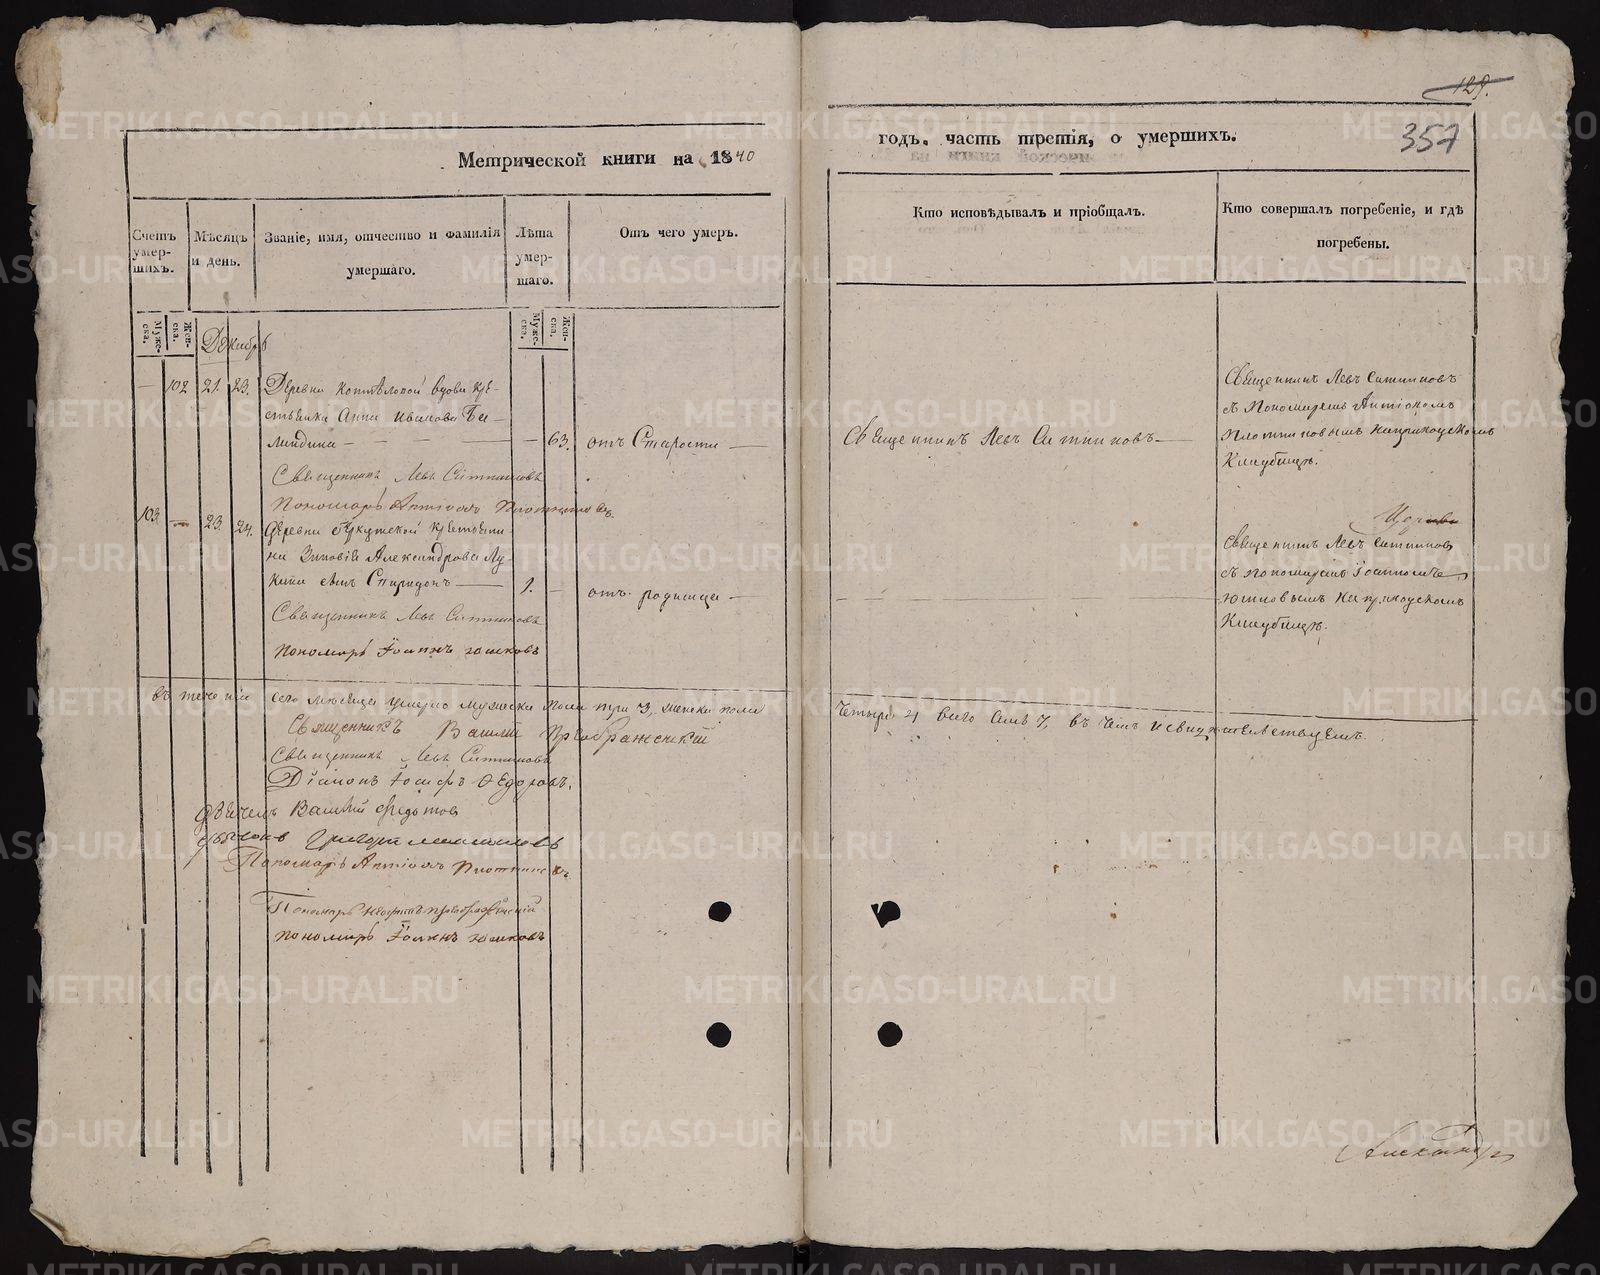 129.
357
Метрической книги на 1840
годъ. часть третія, о умершихъ.
Счетъ умер-шихъ.
Мѣсяцъ и день.
Званіе, имя, отчество и фамилія умершаго.
Лѣта умер-шаго.
Отъ чего умеръ.
Кто исповѣдывалъ и пріобщалъ.
Кто совершалъ погребеніе, и гдѣ погребены.
Муже-ска.
Жен-ска.
Муже-ска.
Жен-ска.
Декабрь
— 102 21. 23. Деревни вдова кре-
стьянка Анна Иванова
— 63. отъ Старости —
Священникъ Левъ Ситниковъ —
Священникъ Левъ Ситниковъ
съ Пономаремъ Антіохомъ
Плотниковымъ на приходскомъ
Кладбищѣ.
Священникъ Левъ Ситниковъ
Пономарь Антіохъ Плотниковъ.
103. — 23. 24. Деревни крестьяни-
на Зиновія Александрова Лу-
кина сынъ Спиридонъ — 1. — отъ родимца —
Священникъ Левъ Ситниковъ
съ пономаремъ Іоанномъ
Юшковымъ на приходскомъ
Кладбищѣ.
Священникъ Левъ Ситниковъ
пономарь Іоаннъ Юшковъ
въ теченіи сего мѣсяца умерло мужеска пола три 3, женска пола
четыре 4 всего семь 7, въ чемъ и свидѣтельствуемъ.
Священникъ Василій Преображенскій
Священникъ Левъ Ситниковъ
Діаконъ Іосифъ Ѳедоровъ.
Дьячекъ Василій Федотовъ
Дьячокъ Григорій
Пономарь Антіохъ Плотниковъ
Пономарь Преображенскій
пономарь Іоаннъ Юшковъ
METRIKI.GASO-URAL.RU